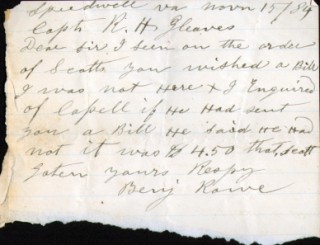 Speedwell va novn 15/84
Capt R. H Gleaves
Dear Sir, I seen on the order
of Scotts you wished a Bill
I was not Here & I Enquired
of Capell if He Had sent
you a Bill He said He Had
not it was $ 4.50 that Scott
Eaten yours Respy
Benj Rowe